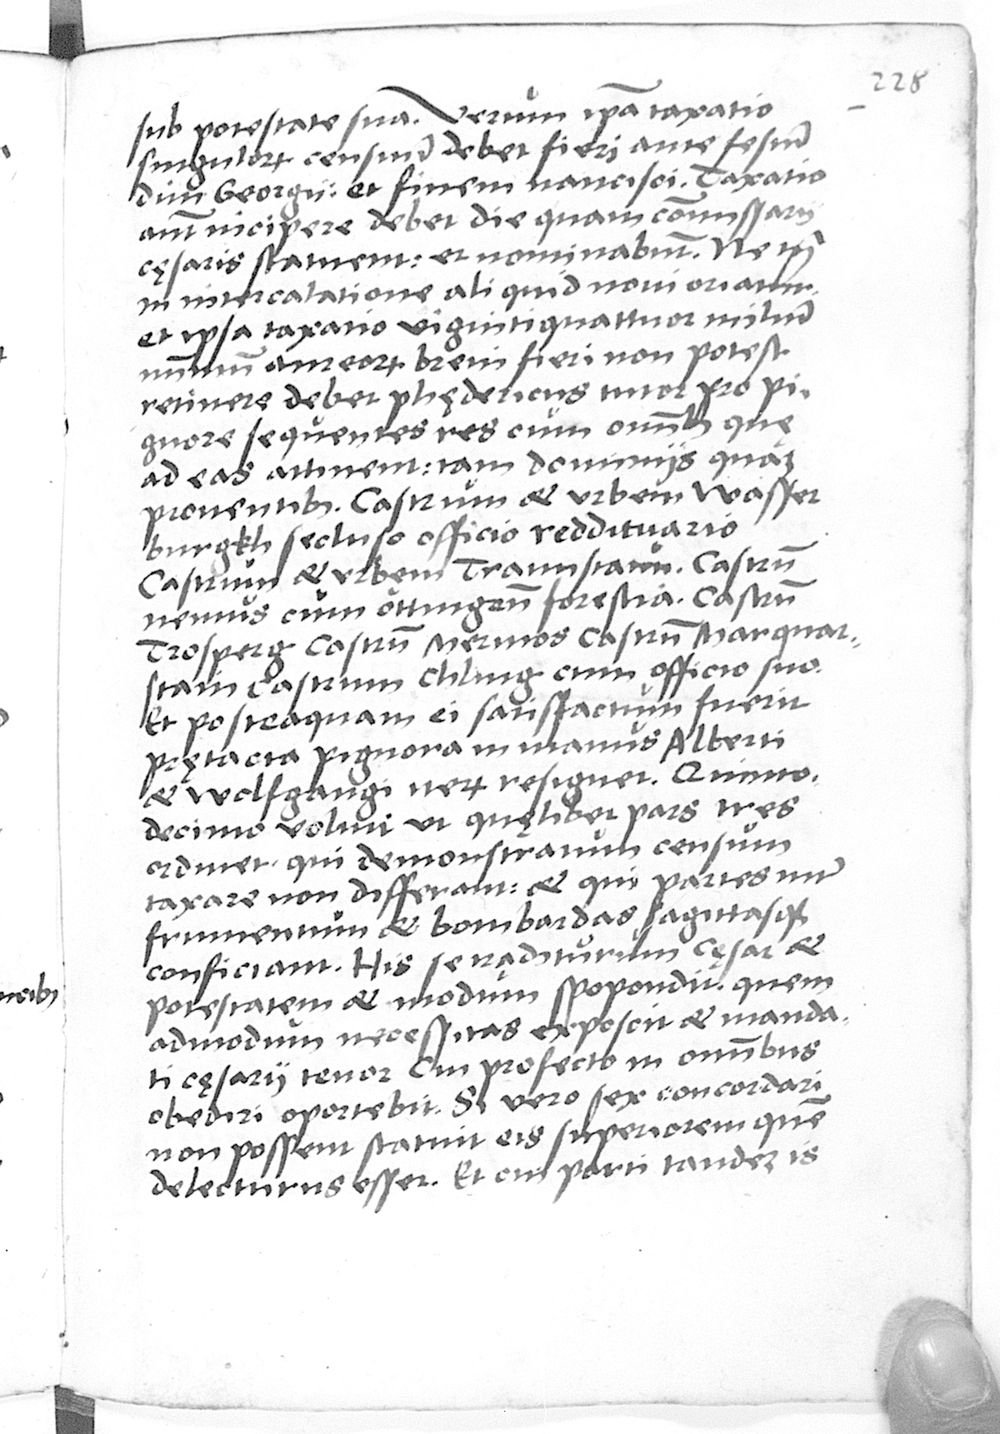 228
sub potestate sua. Verum ip̃a taxatio
singuloꝝ censuũ debet fieri ante festũ
diui Georgii: et finem nancisci. Taxatio
aut̃ incipere debet die quam cõmissarii
cęsaris statuent: et nominabũt. Ne
in intercalatione aliquid noui oriatur.
et ipsa taxatio vigintiquattuor miliũ
aureoꝝ breui fieri non potest
retinere debet phędericus tutor pro pi-
gnore sequentes res cum omĩbꝫ quę
ad eas attinent: tam dominijs quaꝫ
prouentibꝫ. Castrum & vrbem Wasser
burgkh secluso officio reddituario
Castrum & vrbem Traunstain. Castrũ
nemus cum ottingeñ forestia. Castrũ
Trosperg Castrũ Mermos Castrũ Marquar-
stain Castrum Chling cum officio suo.
Et posteaquam ei satisfactum fuerit
prętacta pignora in manus Alberti
& Wolfgangi resignet. Quinto-
decimo voluit vt quęlibet pars tres
ordinet. qui demonstratum censum
taxare non differant: & qui partes int̃
frumentum & bombardas sagittasqꝫ
conficiant. His se traditurum cęsar &
potestatem & modum spopondit. quem
admodum necessitas exposcit & manda-
ti cęsarij tenor Cui profecto in omĩbus
obediri oportebit. Si vero sex concordari
non possent statuit eis superiorem quẽ
delecturus esset. Et cui parti tandeꝫ is